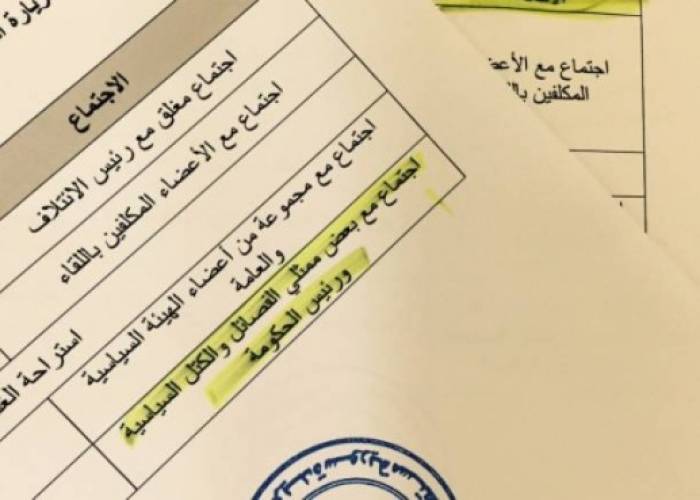 زيارة
الاجتماع
اجتماع مغلق مع رئيس الائتلاف
اجتماع مع الأعضاء المكلفين باللقاء
اجتماع مع مجموعة من أعضاء الهيئة السياسية
والعامة
اجتماع مع بعض ممثلي الفصائل والكتل السياسية
ورئيس الحكومة
استراحة
اجتماع مع
المكلفين